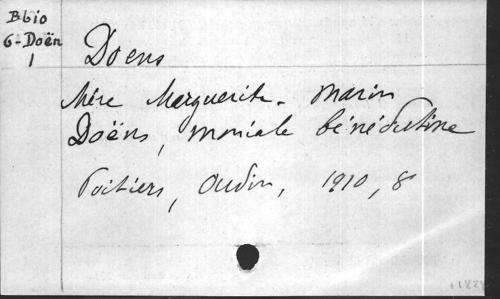 Bbio
6-Doën
1
Doens
Mère Marguerite-Marin
Doëns, moniale bénédictine
Poitiers, Oudin, 1910, 8°